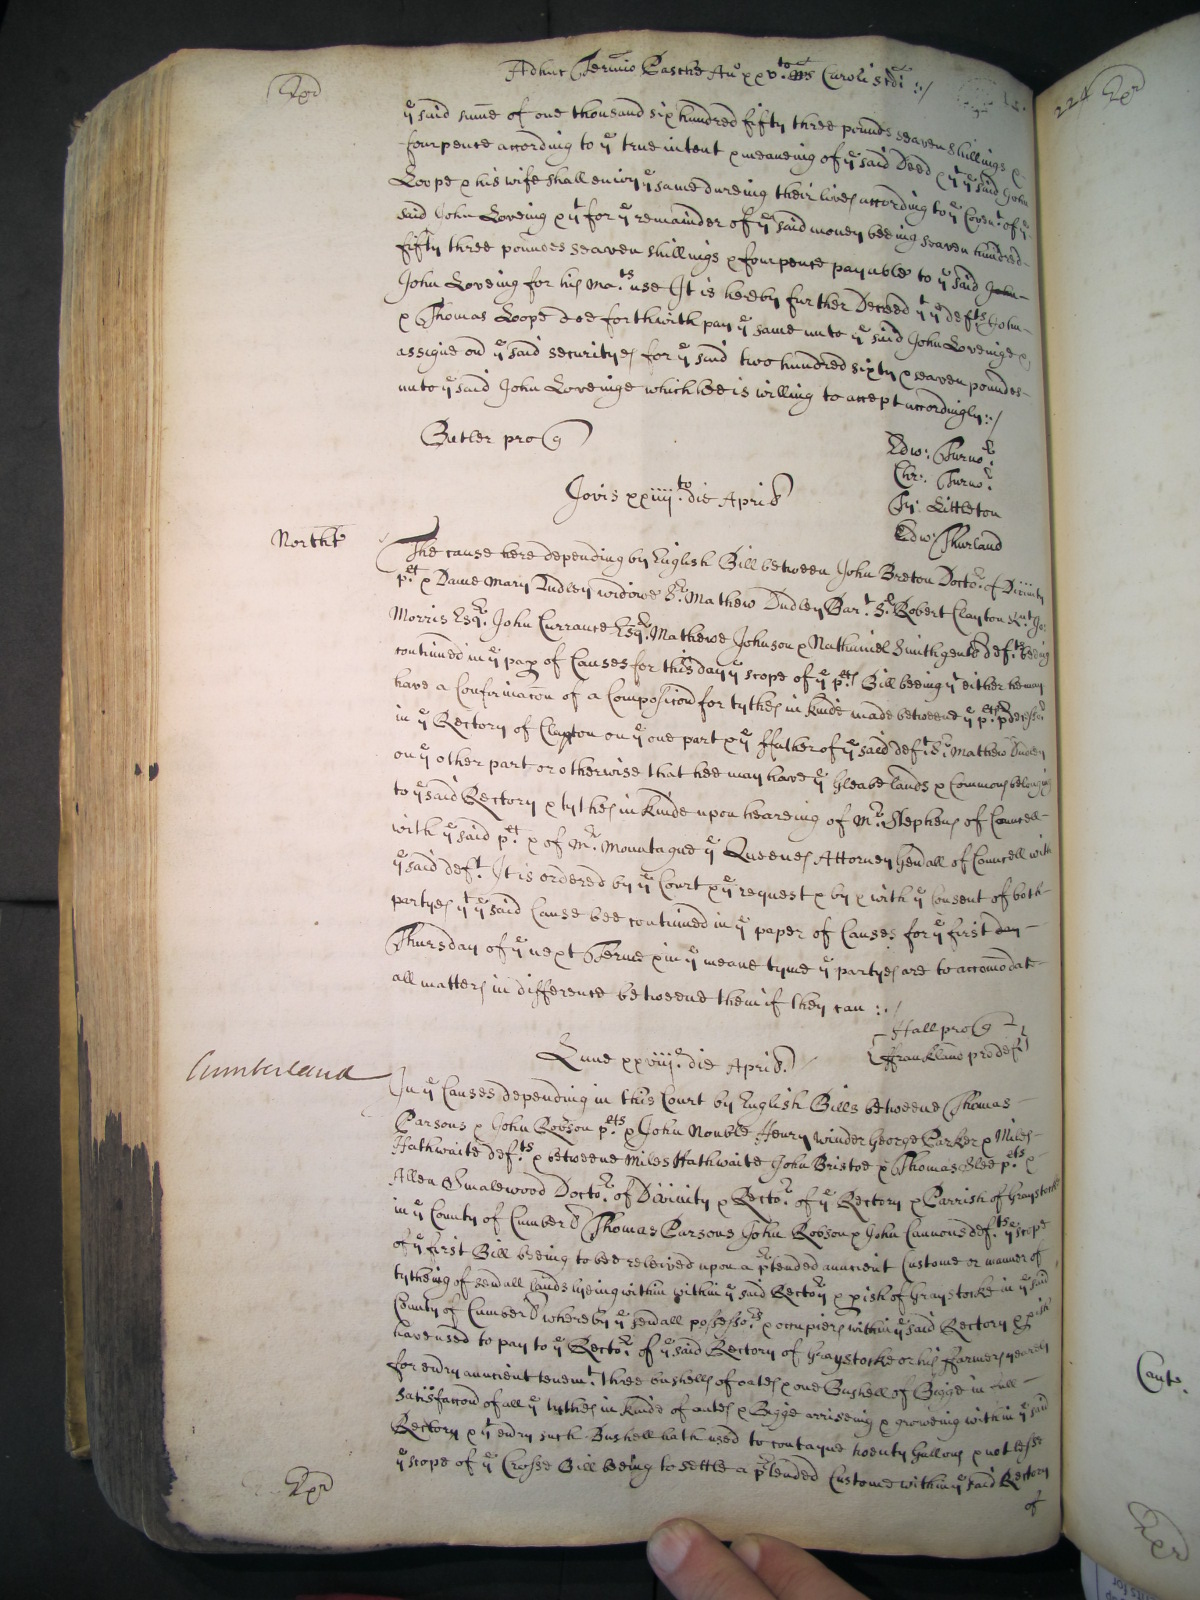 Exr
Adhuc Termio Pasche Ao xxvto Rs Caroli scdi
ye said sume of one thousand six hundred fifty three pounds seaven shillings &
fourpence according to ye true intent & meaneing of ye said Deed & yt ye said John
Loope & his wife shall enioy ye same dureing their lives according to ye Coven:t of ye
said John Loveing & yt for ye remainder of ye said money beeing seaven hundred
fifty three poundes seaven shillings & fourpence payable to ye said John
John Loveing for his Ma:ts use It is hereby further Decreed yt ye def:ts John
& Thomas Loope doe forthwith pay ye same unto ye said John Loveinge &
assigne on ye said securityes for ye said two hundred sixty & seaven poundes
unto ye said John Loveinge which hee is willing to accept accordingly
Butler pro q
Edw: Turno:r
Chr: Turno:r
Ty: Littleton
Edw: Thurland
Jovis xxiiiito: die Aprilis
Northt
The cause here depending by English Bill betweene John Breton Docto:r of Divinity
p:lt & Dame Mary Dudley widowe Sr: Mathew Dudley Bar:t Sr: Robert Clayton Kn:t Jo:
Morris Esqr: John Currance Esqr: Mathewe Johnson & Nathaniel Smith gents def:ts beeing
continued in ye pap of Causes for this day ye scope of ye p:lts Bill beeing yt either he may
have a Confirmacon of a Composicon for tythes in kinde made betweene ye p:lts pdecessor
in ye Rectory of Clapton on ye one part & ye ffather of ye said def:t Sr: Mathew Dudley
on ye other part or otherwise that hee may have ye Gleabe lands & Commons belonging
to ye said Rectory & tythes in kinde upon heareing of Mr: Stephens of Councell
with ye said p:lt & of Mr: Mountague ye Queenes Attorney Gen'all of Councell with
ye said def:t It is ordered by ye Court & ye request & by & with ye Consent of both
partyes yt ye said Cause bee continued in ye paper of Causes for ye first day
Thursday of ye next Terme & in ye meane tyme ye partyes are to accomodate
all matters in difference betweene them if they can
Hall pro q
ffrankland pro def
Lune xxviiio die Aprilis
Cumberland
In ye Causes depending in this Court by English Bills betweene Thomas
Parsons & John Robson p:lts & John Nouble Henry Winder George Parker & Miles
Hathwaite def:ts & betweene Miles Hathwaite John Bristoe & Thomas Slee p:lts &
Allen Smalewood Docto:r of Divinity & Recto:r of ye Rectory & Parrish of Graystocke
in ye County of Cumber'd Thomas Parsons John Robson & John Cannon def:ts ye scope
of ye first Bill beeing to bee releived upon a p'tended auncient Custome or manner of
tytheing of sev'all lands lyeing within within ye said Rectory & pish of Graystocke in ye said
County of Cumber'd whereby ye sev'all possesso:rs & occupiers within ye said Rectory & pish
have used to pay to ye Recto:r of ye said Rectory of Graystocke or his ffarmers yearely
for ev'ry auncient tenem:t three bushells of oates & one Bushell of Bigge in full
satisfaccon of all ye tythes in kinde of oates & Bigge ariseing & groweing within ye said
Rectory & yt ev'ry such Bushell hath used to contayne twenty Gallons & not lesse
ye scope of ye Crosse Bill beeing to settle a p'tended Custome within ye said Rectory
of
Exr
224
Exr
Cant:
Exr